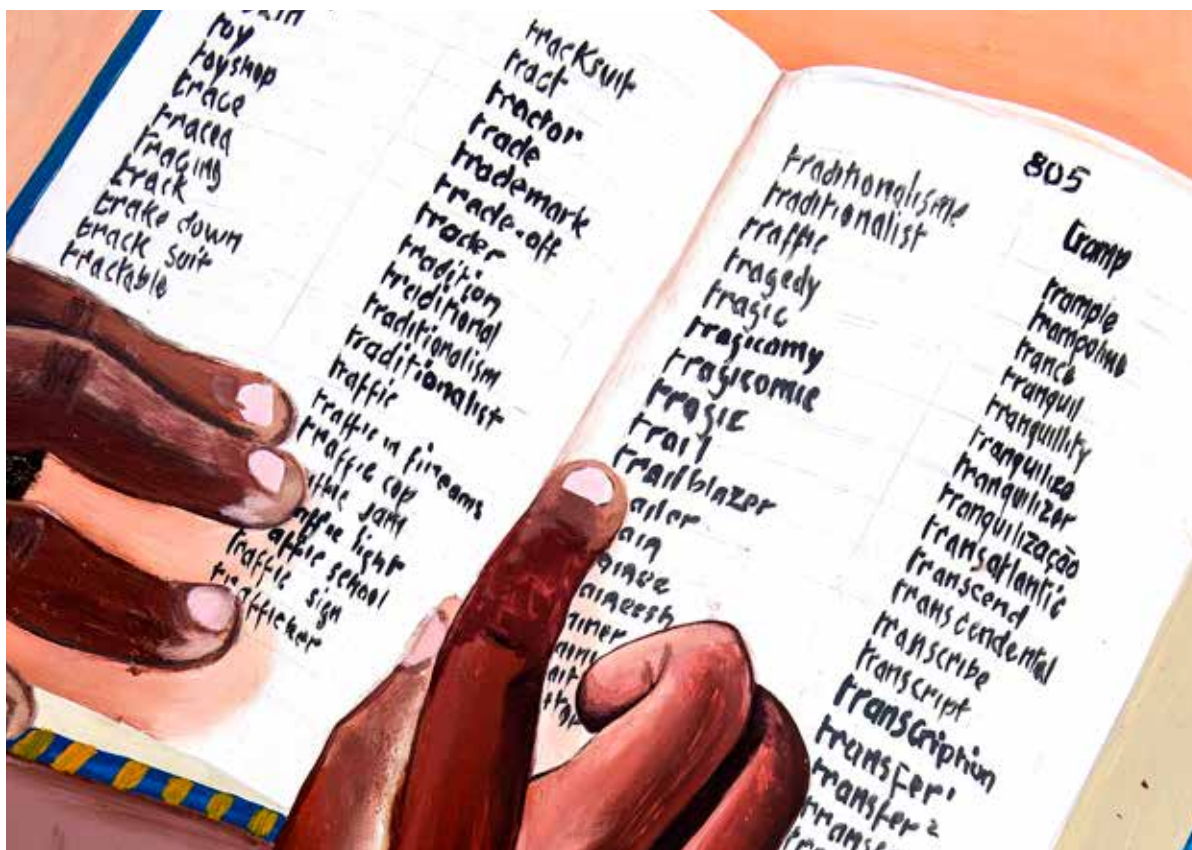 toy
toyshop
trace
tracea
tracing
track
trake down
track suit
tractable
tracksuit
tract
tractor
trade
trademark
trade-off
trader
tradition
traditional
traditionalism
traditionalist
traffic
traffic in fireams
traffic cop
jam
light
affic school
traffic sign
trafficker
traditionalisme
traditionalist
traffic
tragedy
tragic
tragicomy
tragicomie
tragic
trail
trailblazer
ailer
ain
ainee
aineesh
ainer
ait
805
tramp
trample
trampoline
trance
tranquil
tranquillity
tranquilize
tranquilizer
tranquilização
transatlantic
transcend
transcendental
transcribe
transcript
transcription
transfer¹
transfer²